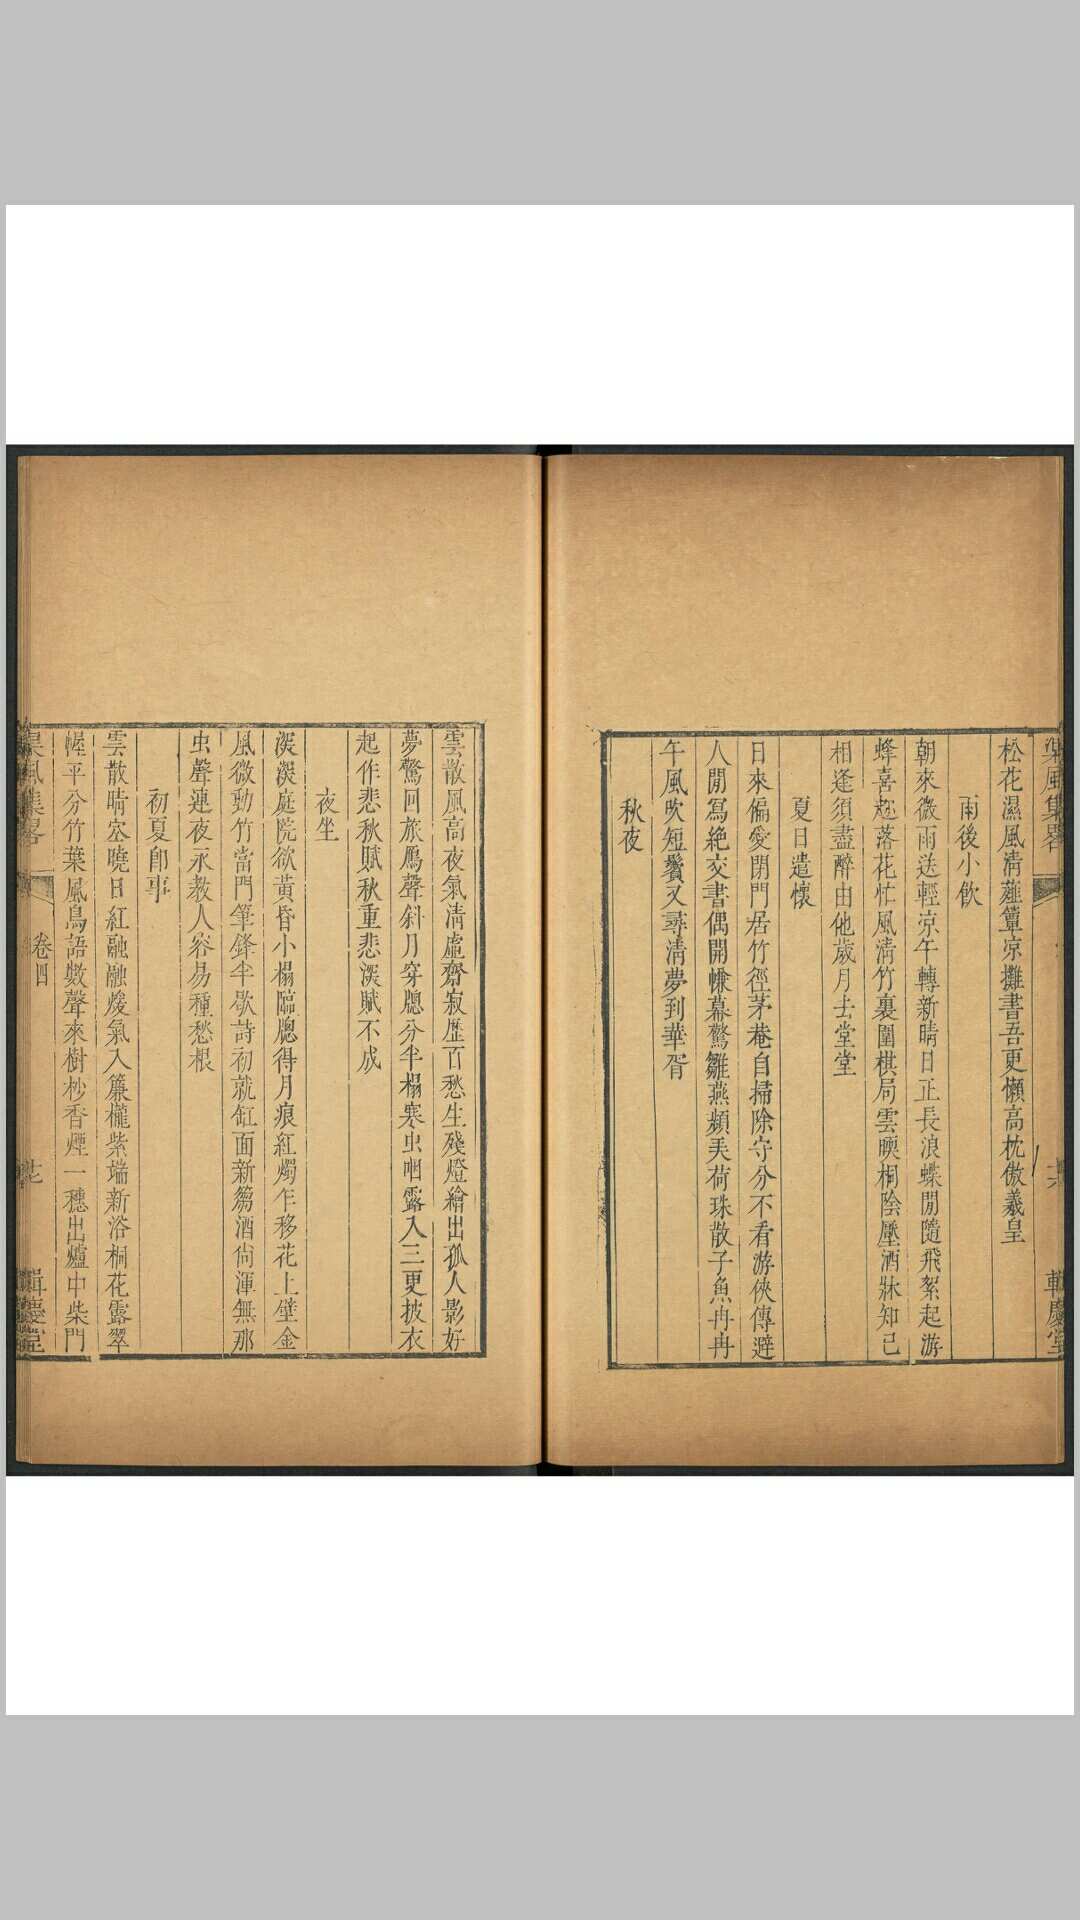 松花濕風清薤簟凉攤書吾更懶高枕傲羲皇
雨後小飲
朝來微雨送輕凉午轉新晴日正長浪蝶閒隨飛絮起游
蜂喜趂落花忙風清竹裏圍棋局雲暝桐陰壓酒牀知己
相逢須盡醉由他歲月去堂堂
夏日遣懷
日來偏愛閉門居竹徑茅菴自掃除守分不看游俠傳避
人閒寫絕交書偶開幙幕驚雛燕頻美荷珠散子魚冉冉
午風吹短鬢又尋清夢到華胥
秋夜
雲散風高夜氣清虛齋寂歷百愁生殘燈繪出孤人影好
夢驚回旅鴈聲斜月穿牕分半榻寒虫咽露入三更披衣
起作悲秋賦秋重悲深賦不成
夜坐
深深庭院欲黃昏小榻臨牕得月痕紅燭乍移花上壁金
風微動竹當門筆鋒半歇詩初就缸面新篘酒尙渾無那
虫聲連夜永教人容易種愁根
初夏卽事
雲散晴空曉日紅融融煖氣入簾櫳紫端新浴桐花露翠
幄平分竹葉風鳥語數聲來樹杪香煙一穗出爐中柴門
卷四